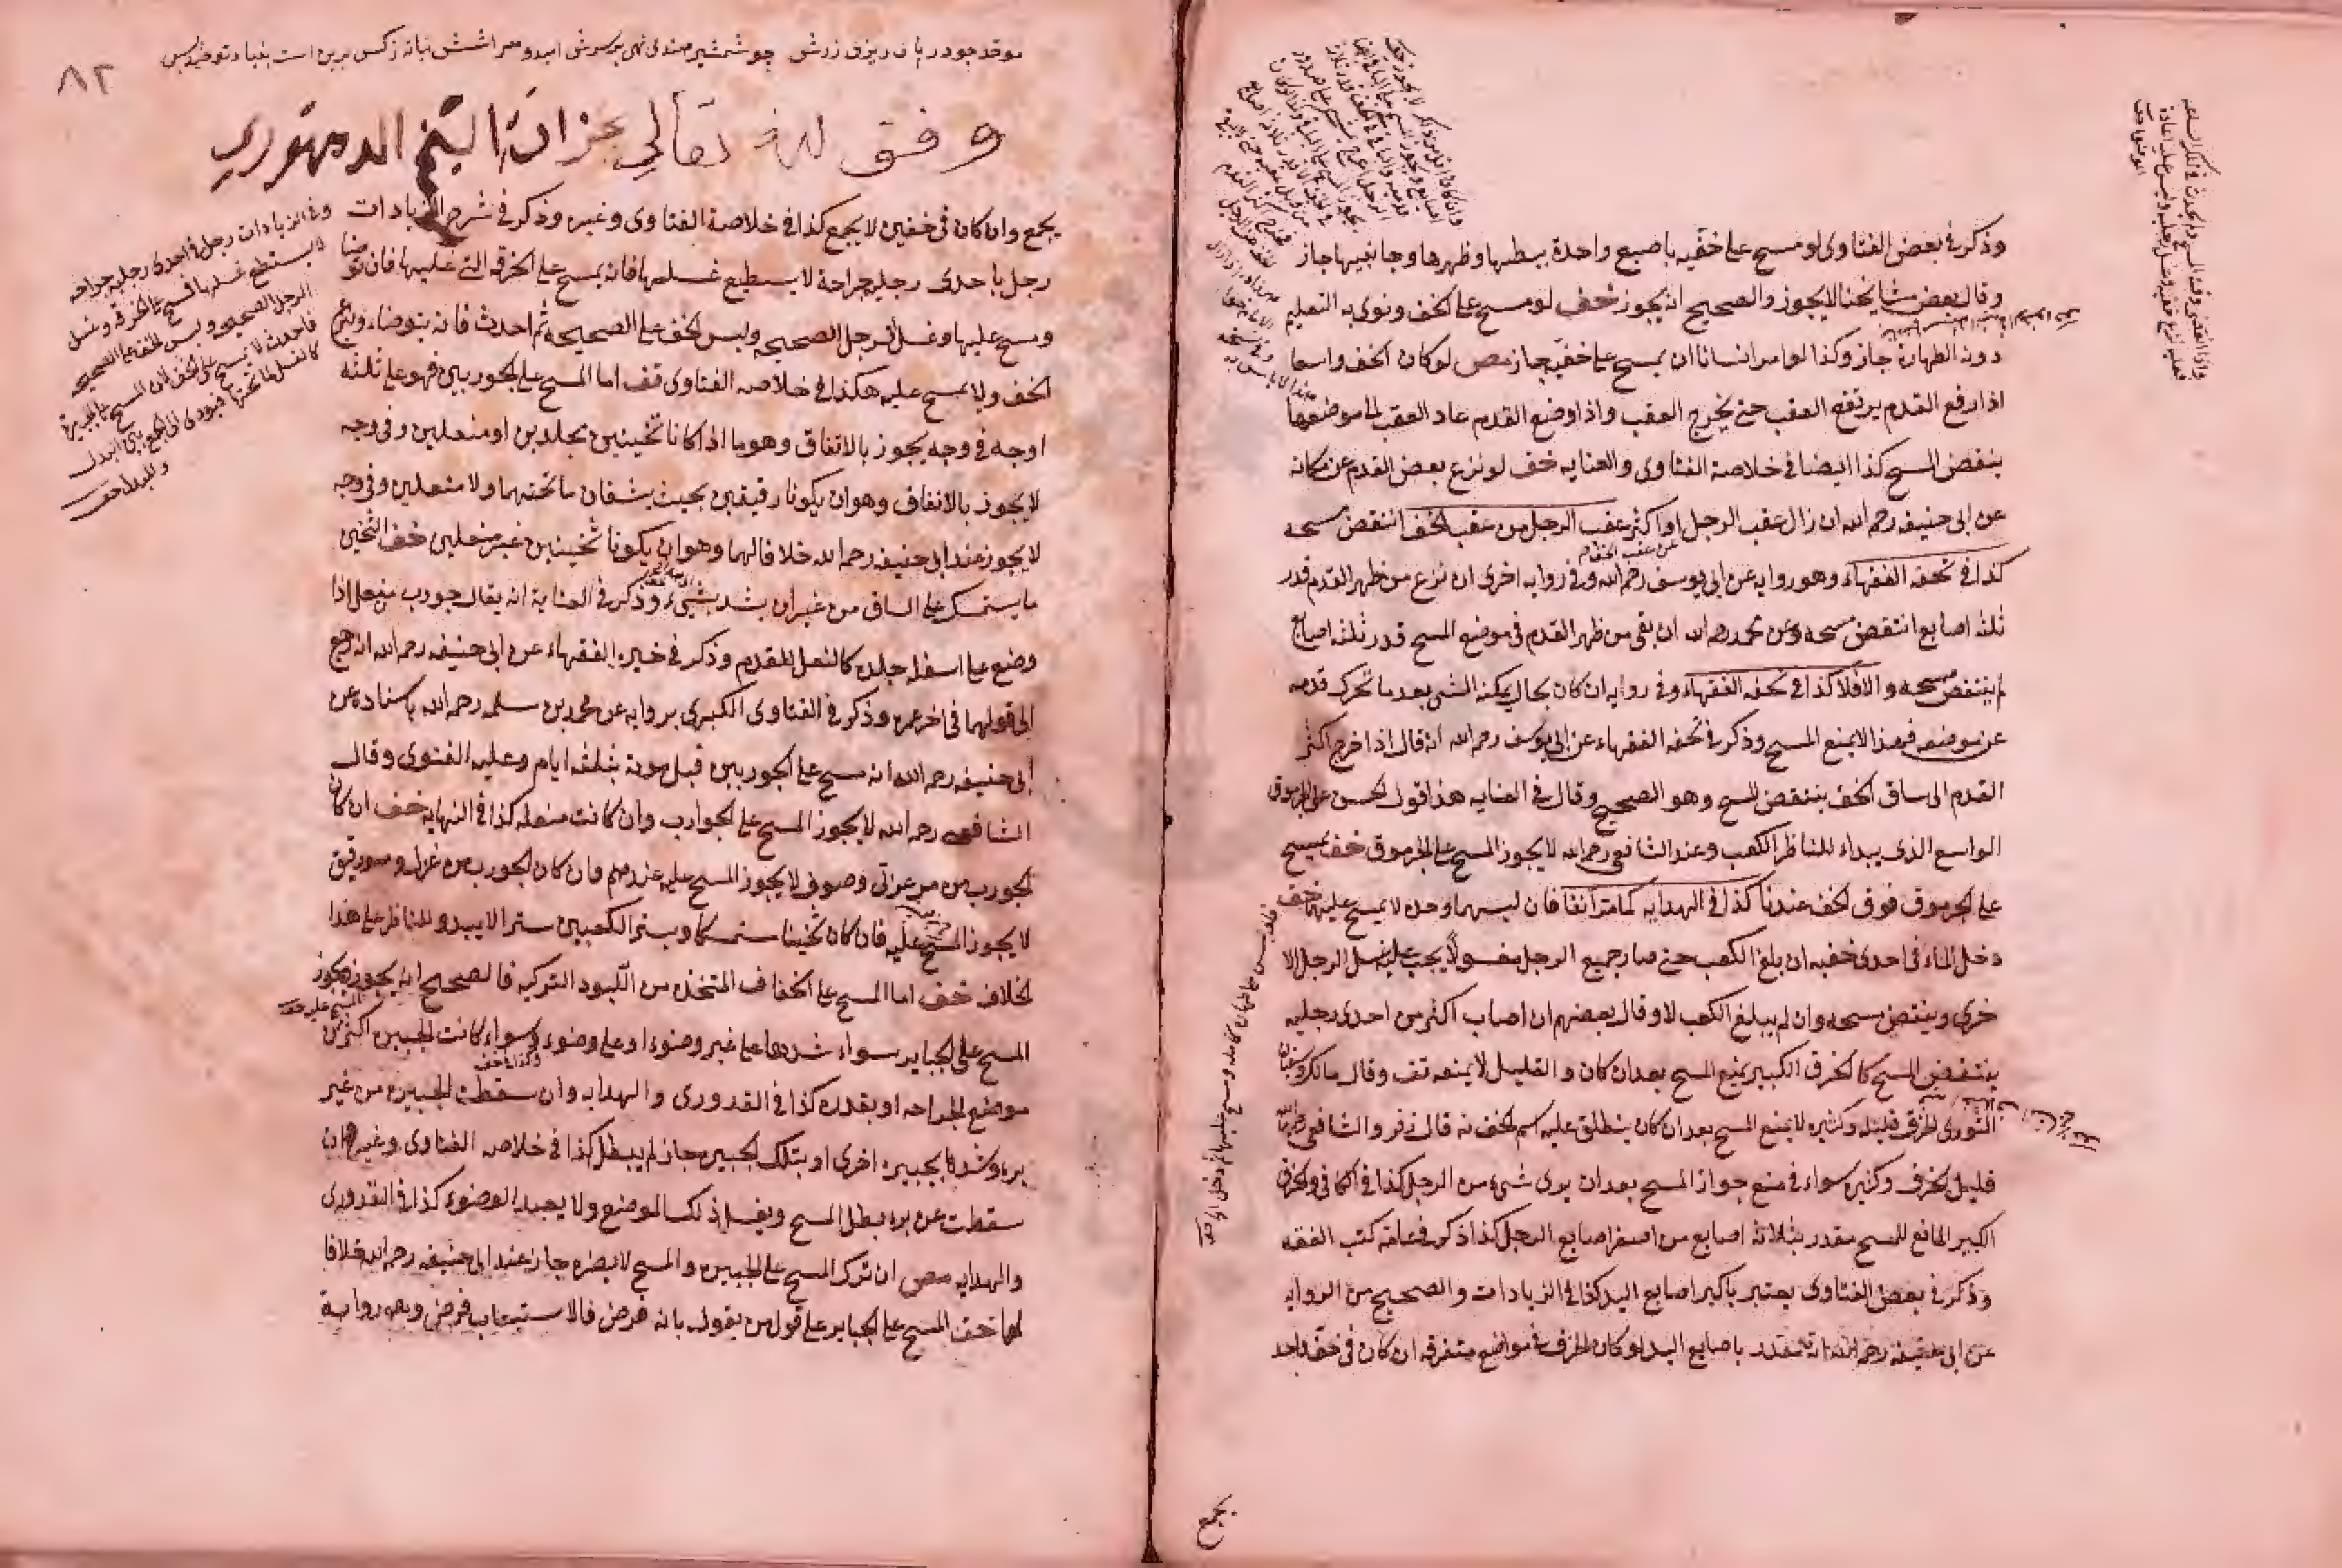 وذكر في بعض الفتاوى لو مسح على خفيه باصبع واحدة ببطنها وظهرها وجانبيها جاز
وقال بعض مشايخنا لا يجوز والصحيح انه يجوز خف لو مسح على الخف ونوى به التعليم
دون الطهارة جاز وكذا لو امر انسانا ان يمسح على خفيه جاز مص لو كان الخف واسعا
اذا رفع القدم يرتفع العقب حتى يخرج العقب واذا وضع القدم عاد العقب الى موضعها
ينتقض المسح كذا ايضا في خلاصة الفتاوى والعنايه خف لو نزع بعض القدم عن مكانه
عن ابى حنيفه رحمه الله ان زال عقب الرجل او اكثر عقب الرجل من عقب الخف انتقض مسحه
كذا في تحفه الفقهاء وهو روايه عن ابى يوسف رحمه الله وفي روايه اخرى ان نزع من ظهر القدم قدر
ثلثه اصابع انتقض مسحه وعن محمد رحمه الله ان بقى من ظهر القدم في موضع المسح قدر ثلثه اصابع
لم ينتقض مسحه والا فلا كذا في تحفه الفقهاء وفي روايه ان كان بحال يمكنه المشى بعد ما تحرك قدمه
عن موضعه فهذا لا يمنع المسح وذكر في تحفه الفقهاء عن ابى يوسف رحمه الله انه قال اذا خرج اكثر
القدم الى ساق الخف ينتقض المسح وهو الصحيح وقال في العنايه هذا قول الحسن على الجرموق
الواسع الذى يبداء للناظر الكعب وعند الشافعى رحمه الله لا يجوز المسح على الجرموق خف يمسح
على الجرموق فوق الخف عندنا كذا في الهدايه كما مر آنفا فان لبسهما وحده لا يمسح عليهما خف
دخل الماء في احدى خفيه ان بلغ الكعب حتى صار جميع الرجل مغسولا يجب عليه غسل الرجل الا
خرى وينتقض مسحه وان لم يبلغ الكعب لا وقال بعضهم ان اصاب اكثر من احدى رجليه
ينتقض المسح كالخرق الكبير يمنع المسح بعد ان كان والقليل لا يمنعه تف وقال مالك وسفيان
الثورى الخرق قليله وكثيره لا يمنع المسح بعد ان كان ينطلق عليه اسم الخف نه قال زفر والشافعى رحمهما الله
قليل الخرق وكثيره سواء في منع جواز المسح بعد ان يرى شئ من الرجل كذا في الكافى والخرق
الكبير المانع للمسح مقدر بثلاثة اصابع من اصغر اصابع الرجل كذا ذكر في عامة كتب الفقه
وذكر في بعض الفتاوى يعتبر باكبر اصابع اليد كذا في الزيادات والصحيح من الروايه
عن ابى حنيفه رحمه الله انه مقدر باصابع اليد لو كان الخرق في مواضع متفرقه ان كان في خف واحد
يجمع
٨٢
وقف لله تعالي بخزانة الشيخ الدمنهوري
يجمع وان كان في خفين لا يجمع كذا في خلاصة الفتاوى وغيره وذكر في شرح الزيادات
رجل باحدى رجليه جراحة لا يستطيع غسلها فانه يمسح على الخرقه التي عليها فان توضا
ومسح عليها وغسل الرجل الصحيحه ولبس الخف على الصحيحه ثم احدث فانه يتوضاء وينزع
الخف ولا يمسح عليه هكذا في خلاصه الفتاوى قف اما المسح على الجوربين فهو على ثلثة
اوجه في وجه يجوز بالاتفاق وهو ما اذا كانا ثخينين مجلدين او منعلين وفي وجه
لا يجوز بالاتفاق وهو ان يكونا رقيقين بحيث يشفان ما تحتهما ولا منعلين وفي وجه
لا يجوز عند ابى حنيفه رحمه الله خلافا لهما وهو ان يكونا ثخينين غير منعلين خف الثخين
ما يستمسك على الساق من غير ان يشد بشئ وذكر في العناية انه يقال جورب منعل اذا
وضع على اسفله جلده كالنعل للقدم وذكر في خيره الفقهاء عن ابى حنيفه رحمه الله انه رجع
الى قولهما في اخر عمره وذكر في الفتاوى الكبيرى بروايه عن محمد بن سلمه رحمه الله باسناده عن
ابى حنيفه رحمه الله انه مسح على الجوربين قبل موته بثلثه ايام وعليه الفتوى وقال
الشافعى رحمه الله لا يجوز المسح على الجوارب وان كانت منعله كذا في النهايه خف ان كان
الجورب من مرعزى وصوف لا يجوز المسح عليه عندهم وان كان الجورب من غزل وهو رقيق
لا يجوز المسح عليه فان كان ثخينا مستمسكا ويستر الكعبين سترا لا يبدو للناظر على هذا
الخلاف خف اما المسح على الخفاف المتخذه من اللبود التركيه فالصحيح انه يجوز
المسح على الجباير سواء شدها على غير وضوء او على وضوء وسواء كانت الجبيره اكثر من
موضع الجراحه او بقدره كذا في القدورى والهدايه وان سقطت الجبيره من غير
برء وشدها بجبيره اخرى او بتلك الجبيره جاز لم يبطل كذا في خلاصه الفتاوى وغيره وان
سقطت عن برء بطل المسح ويغسل ذلك الموضع ولا يعيد الوضوء كذا في القدورى
والهدايه مص ان ترك المسح على الجبيره والمسح لا يضره جاز عند ابى حنيفه رحمه الله خلافا
لهما تحف المسح على الجباير على قول من يقول بانه فرض فالاستيعاب فرض وهو رواية
وفى الزيادات رجل في احدى رجليه جراحه
لا يستطيع غسلها فمسح على الخرقه وغسل
الرجل الصحيحه ولبس الخف على الصحيحه
فاحدث لا يمسح على الخف لان المسح على الجبيرة
كالغسل لما تحتها فيؤدى الى الجمع بين البدل